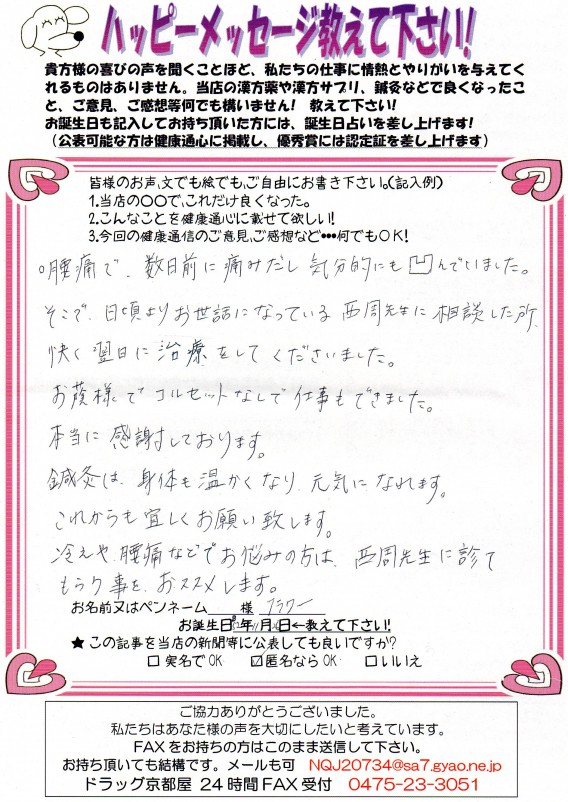 ハッピーメッセージ教えて下さい!
貴方様の喜びの声を聞くことほど、私たちの仕事に情熱とやりがいを与えてく
れるものはありません。当店の漢方薬や漢方サプリ、鍼灸などで良くなったこ
と、ご意見、ご感想等何でも構いません! 教えて下さい!
お誕生日も記入してお持ち頂いた方には、誕生日占いを差し上げます!
(公表可能な方は健康通心に掲載し、優秀賞には認定証を差し上げます)
皆様のお声、文でも絵でも、ご自由にお書き下さい。(記入例)
1.当店の〇〇で、これだけ良くなった。
2.こんなことを健康通心に載せて欲しい!
3.今回の健康通信のご意見、ご感想など・・・何でもOK!
○腰痛で、数日前に痛みだし気分的にも凹んでいました。
そこで、日頃よりお世話になっている西周先生に相談した所、
快く翌日に治療をしてくださいました。
お蔭様でコルセットなしで仕事もできました。
本当に感謝しております。
鍼灸は、身体も温かくなり、元気になれます。
これからも宜しくお願い致します。
冷えや、腰痛などでお悩みの方は、西周先生に診て
もらう事を、おススメします。
お名前又はペンネーム 様 フラワー
お誕生日 年 月 日←教えて下さい!
★この記事を当店の新聞等に公表しても良いですか?
□実名でOK ☑匿名ならOK □いいえ
ご協力ありがとうございました。
私たちはあなた様の声を大切にしたいと考えています。
FAXをお持ちの方はこのまま送信して下さい。
お持ち頂いても結構です。メールも可 NQJ20734@sa7.gyao.ne.jp
ドラッグ京都屋 24時間FAX受付 0475-23-3051